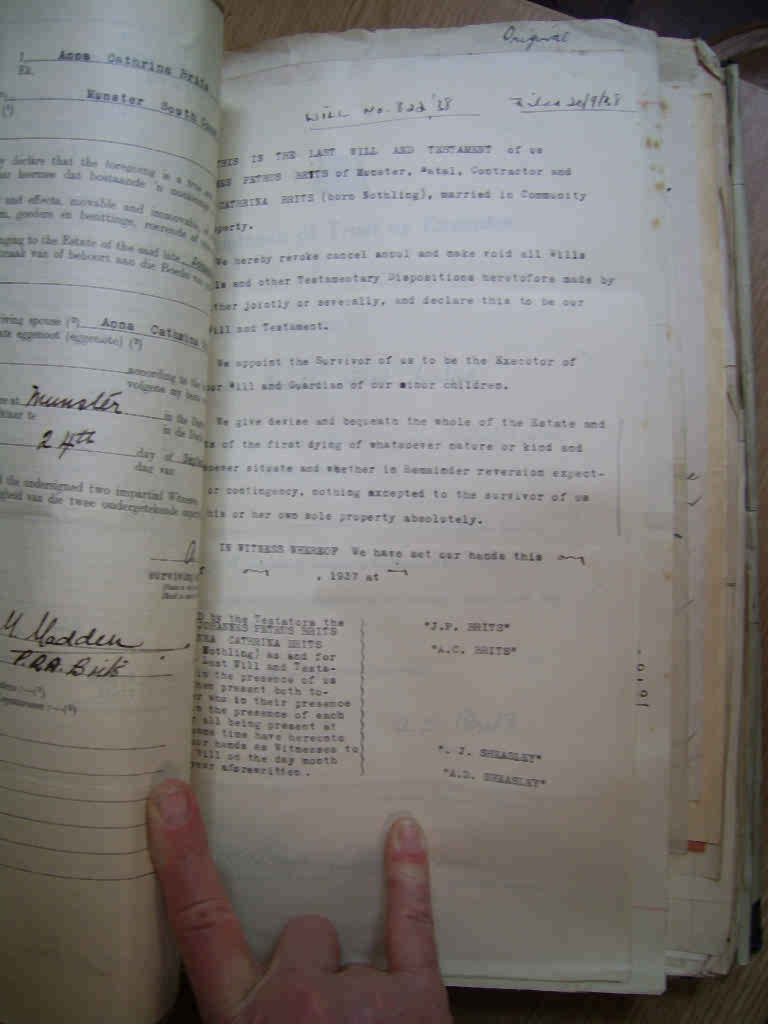 I, Anna Cathrina Brits
Ek,
Munster South
(¹)
declare that the foregoing is a true
hiermee dat bostaande 'n
and effects, movable and immovable,
goedere en besittings, roerende
to the Estate of the said late
of behoort aan die Boedel van
spouse (²) Anna Cathrina
eggenoot (eggenote) (²)
according to the
volgens my
at Munster in the
te in die
24th day of
dag van
the undersigned two impartial Witnesses
van die twee ondergetekende
surviving
M Madden
P.R.A. Brits
Original
Will No. 822/38 Filed 20/9/38
THIS IS THE LAST WILL AND TESTAMENT of us
PETRUS BRITS of Munster, Natal, Contractor and
CATHRINA BRITS (born Nothling), married in Community
perty.
We hereby revoke cancel annul and make void all Wills
ls and other Testamentary Dispositions heretofore made by
ther jointly or severally, and declare this to be our
ill and Testament.
We appoint the Survivor of us to be the Executor of
our Will and Guardian of our minor children.
We give devise and bequeath the whole of the Estate and
ts of the first dying of whatsoever nature or kind and
soever situate and whether in Remainder reversion expect-
or contingency, nothing excepted to the survivor of us
his or her own sole property absolutely.
IN WITNESS WHEREOF We have set our hands this
, 1937 at
D by the Testators the
JOHANNES PETRUS BRITS
NNA CATHRINA BRITS
Nothling) as and for
Last Will and Testa-
in the presence of us
hen present both to-
r who in their presence
n the presence of each
all being present at
same time have hereunto
our hands as Witnesses to
Will on the day month
year aforewritten.
"J.P. BRITS"
"A.C. BRITS"
". J. SHEASLEY"
"A.D. SHEASLEY"